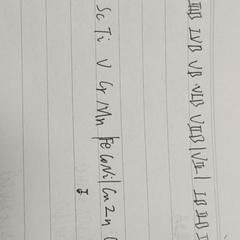 ⅢB ⅣB ⅤB ⅥB ⅦB |Ⅷ| ⅠB ⅡB
Sc Ti V Cr Mn |Fe Co Ni| Cu Zn